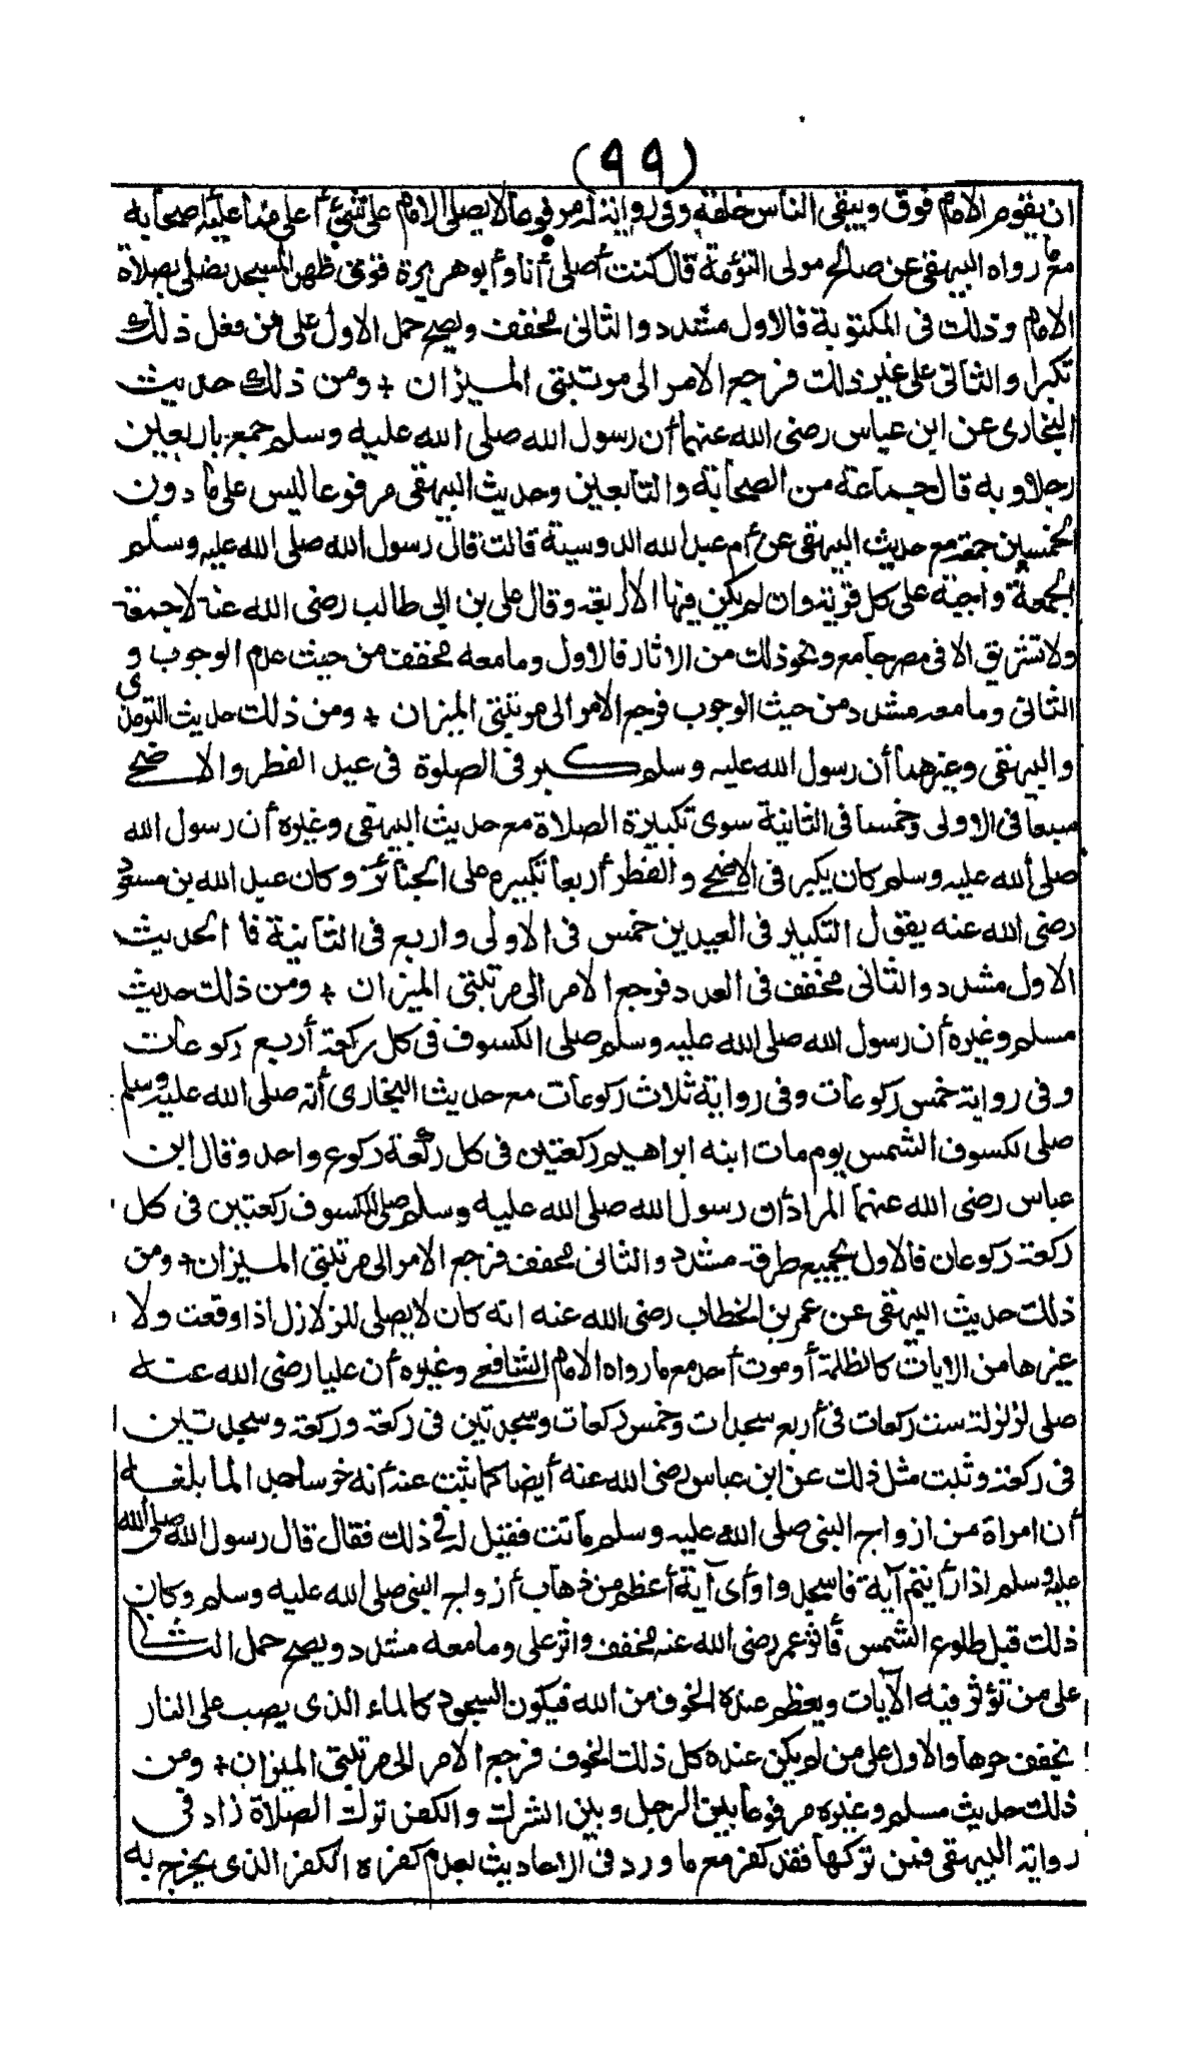 (٩٩)
ان يقوم الامام فوق ويبقى الناس خلفه وفى رواية له مرفوعا لا يصلى الامام على شئ أعلى مما عليه اصحابه
مع ما رواه البيهقى عن صالح مولى التؤمة قال كنت أصلى أنا وأبو هريرة فوق ظهر المسجد نصلى بصلاة
الامام وذلك فى المكتوبة فالاول مشدد والثانى مخفف ويصح حمل الاول على من فعل ذلك
تكبرا والثانى على غير ذلك فرجع الامر الى مرتبتى الميزان + ومن ذلك حديث
البخارى عن ابن عباس رضى الله عنهما أن رسول الله صلى الله عليه وسلم جمع باربعين
رجلا وبه قال جماعة من الصحابة والتابعين وحديث البيهقى مرفوعا ليس على ما دون
الخمسين جمعة مع حديث البيهقى عن أم عبد الله الدوسية قالت قال رسول الله صلى الله عليه وسلم
الجمعة واجبة على كل قرية وان لم يكن فيها الا أربعة وقال على بن ابى طالب رضى الله عنه لا جمعة
ولا تشريق الا فى مصر جامع ونحو ذلك من الاثار فالاول وما معه مخفف من حيث عدم الوجوب و
الثانى وما معه مشدد من حيث الوجوب فرجع الامر الى مرتبتى الميزان + ومن ذلك حديث الترمذى
والبيهقى وغيرهما أن رسول الله عليه وسلم كبر فى الصلوة فى عيد الفطر والاضحى
سبعا فى الاولى وخمسا فى الثانية سوى تكبيرة الصلاة مع حديث البيهقى وغيره أن رسول الله
صلى الله عليه وسلم كان يكبر فى الاضحى والفطر أربعا تكبيره على الجنائز وكان عبد الله بن مسعود
رضى الله عنه يقول التكبير فى العيدين خمس فى الاولى واربع فى الثانية فا الحديث
الاول مشدد والثانى مخفف فى العدد فرجع الامر الى مرتبتى الميزان + ومن ذلك حديث
مسلم وغيره أن رسول الله صلى الله عليه وسلم صلى الكسوف فى كل ركعة أربع ركوعات
وفى رواية خمس ركوعات وفى رواية ثلاث ركوعات مع حديث البخارى أنه صلى الله عليه وسلم
صلى لكسوف الشمس يوم مات ابنه ابراهيم ركعتين فى كل ركعة ركوع واحد وقال ابن
عباس رضى الله عنهما المراد أن رسول الله صلى الله عليه وسلم صلى الكسوف ركعتين فى كل
ركعة ركوعان فالاول بجميع طرقه مشدد والثانى مخفف فرجع الامر الى مرتبتى الميزان + ومن
ذلك حديث البيهقى عن عمر بن الخطاب رضى الله عنه انه كان لا يصلى للزلازل اذا وقعت ولا
غيرها من الايات كالظلمة أو موت أحد مع ما رواه الامام الشافعى وغيره أن عليا رضى الله عنه
صلى لزلزلة ست ركعات فى أربع سجدات وخمس ركعات وسجدتين فى ركعة وركعة وسجدتين
فى ركعة وثبت مثل ذلك عن ابن عباس رضى الله عنه أيضا كما ثبت عنه أنه خر ساجدا لما بلغه
أن امراة من ازواج النبى صلى الله عليه وسلم ماتت فقيل له فى ذلك فقال قال رسول الله صلى الله
عليه وسلم اذا رأيتم آية فاسجدوا وأى آية أعظم من ذهاب أزواج النبى صلى الله عليه وسلم وكان
ذلك قبل طلوع الشمس فأثر عمر رضى الله عنه مخفف واثر على وما معه مشدد ويصح حمل الثانى
على من تؤثر فيه الآيات ويعظم عنده الخوف من الله فيكون السجود كالماء الذى يصب على النار
يخفف حرها والاول على من لم يكن عنده كل ذلك الخوف فرجع الامر الى مرتبتى الميزان + ومن
ذلك حديث مسلم وغيره مرفوعا بين الرجل وبين الشرك والكفر ترك الصلاة زاد فى
رواية البيهقى فمن تركها فقد كفر مع ما ورد فى الاحاديث بعدم كفره الكفر الذى يخرج به